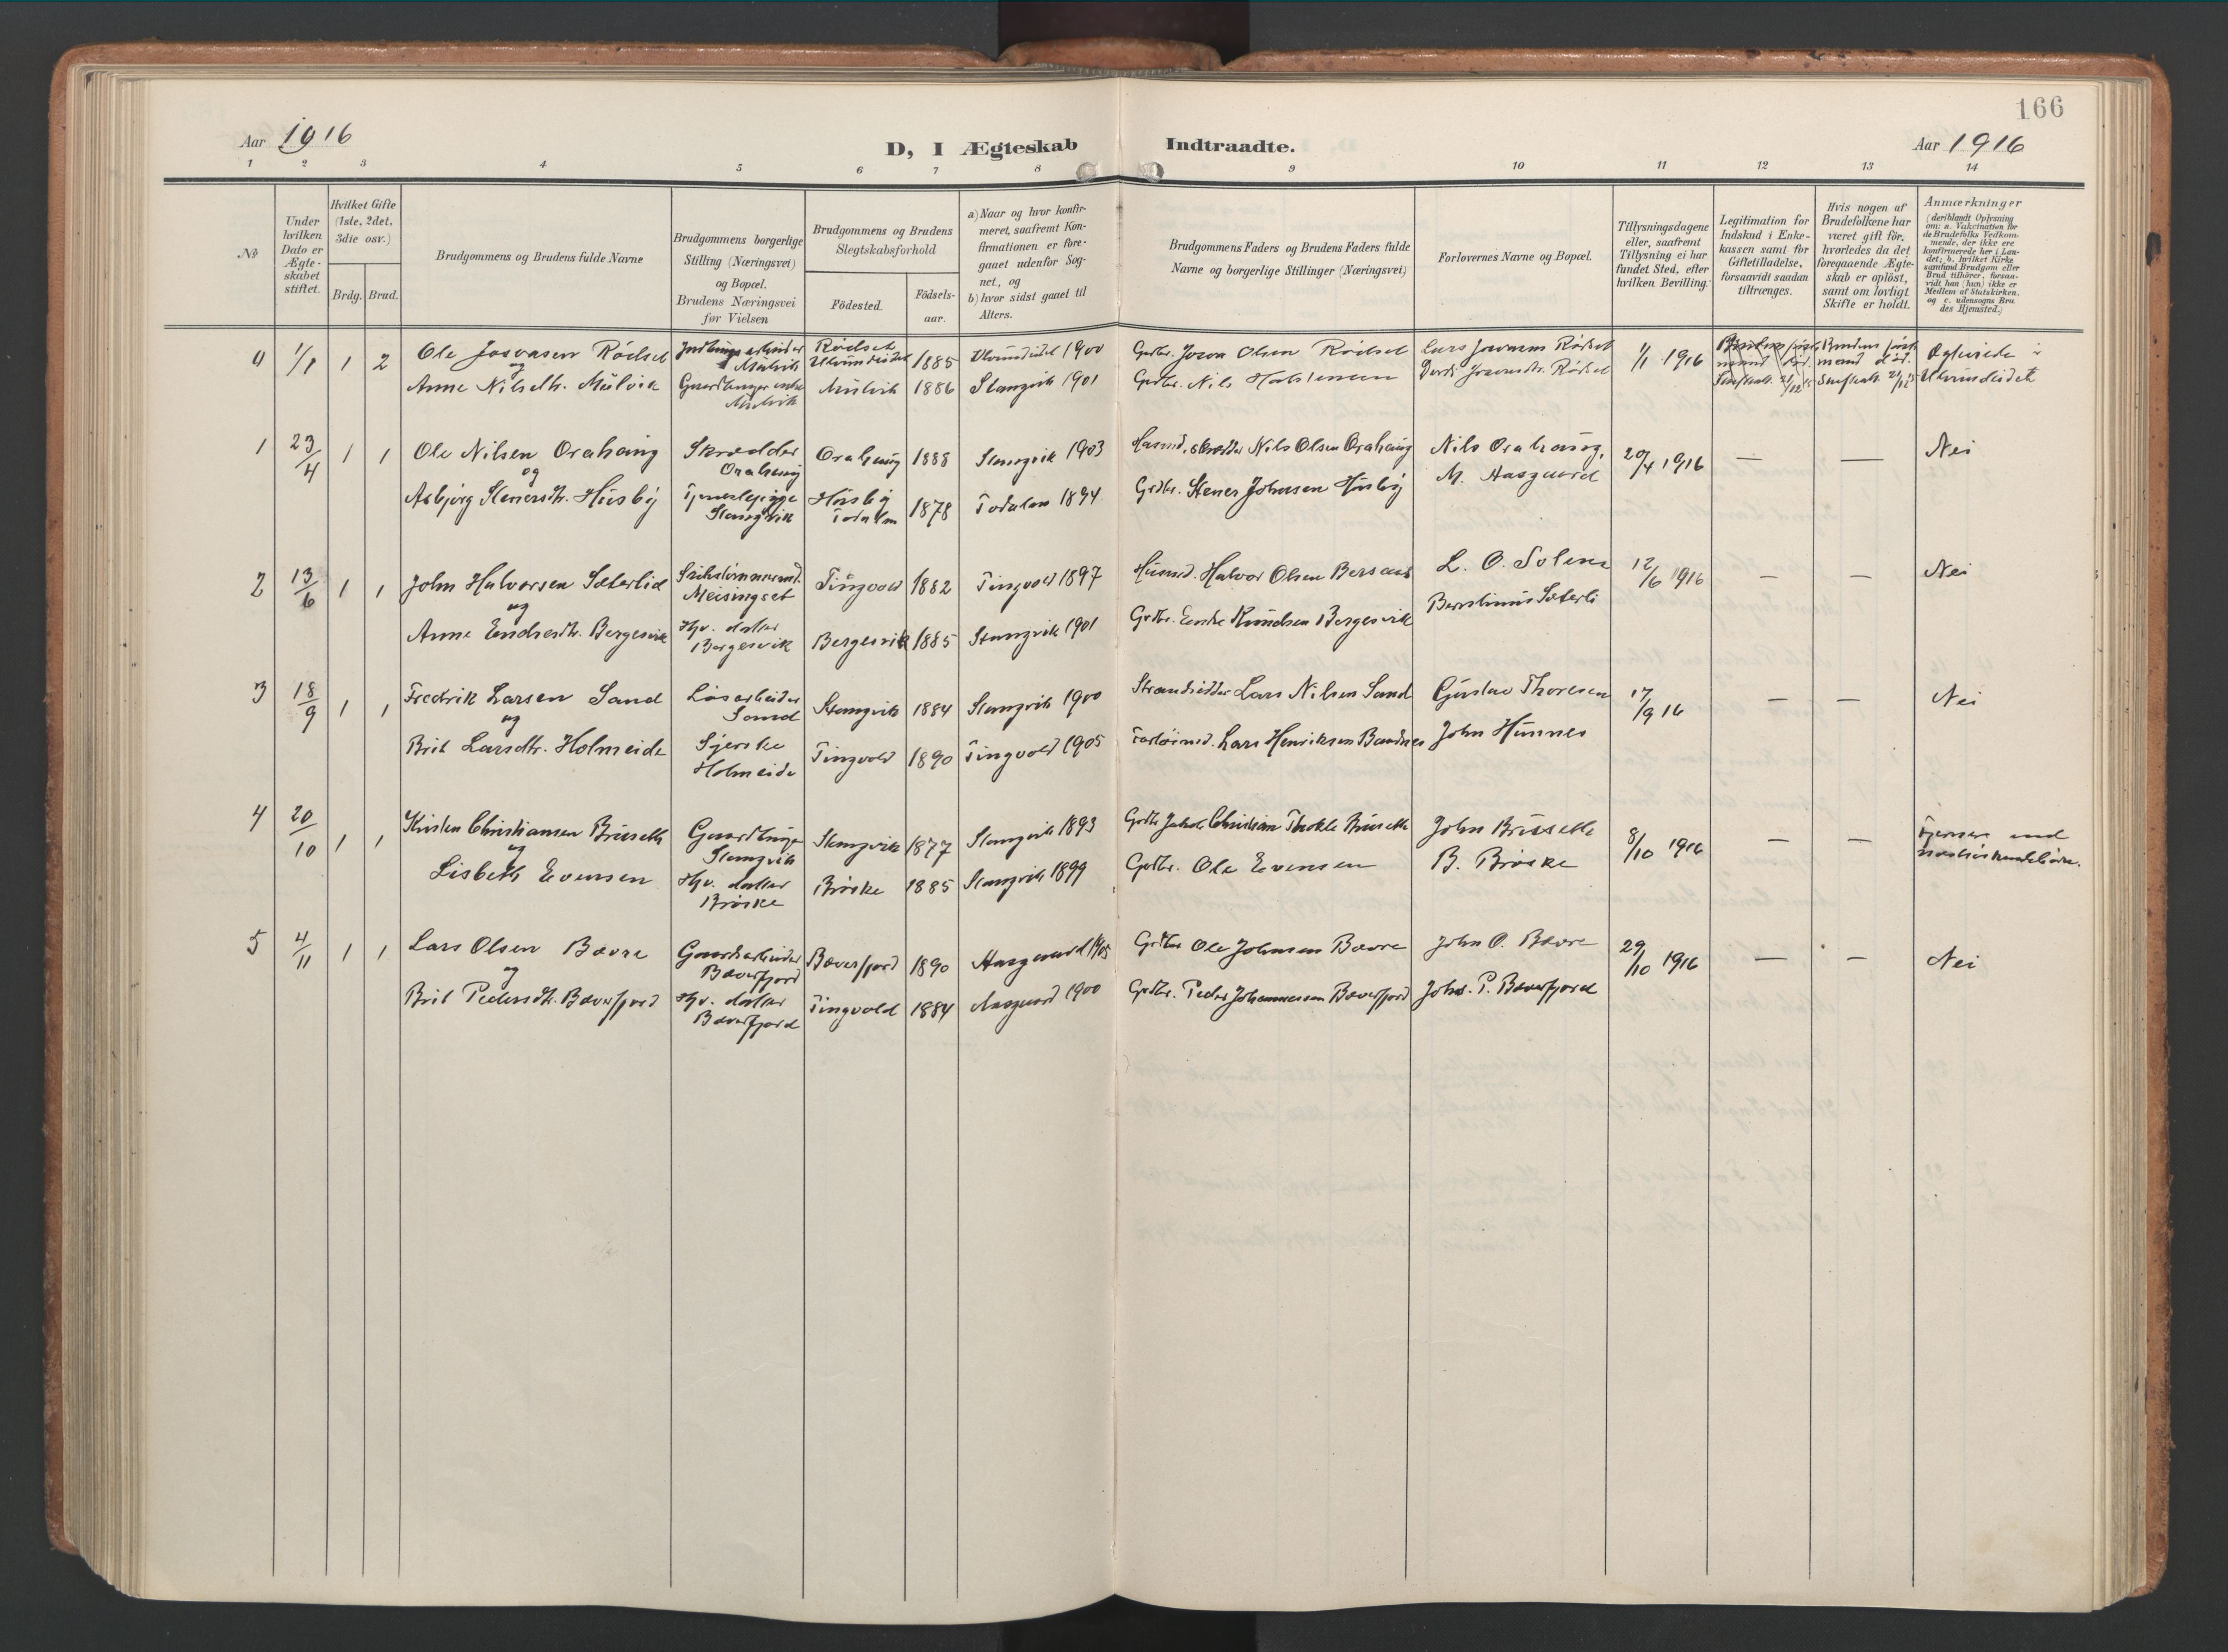 166
Aar 1916
D, I Ægteskab Indtraadte.
Aar 1916
1 2 3 4 5 6 7 8 9 10 11 12 13 14
No
Under
hvilken
Dato er
Ægte-
skabet
stiftet.
Hvilket Gifte
(1ste, 2det,
3die osv.)
Brdg. Brud.
Brudgommens og Brudens fulde Navne
Brudgommens borgerlige
Stilling (Næringsvei)
og Bopæl.
Brudens Næringsvei
før Vielsen
Brudgommens og Brudens
Slegtskabsforhold
Födested.
Födsels-
aar.
a) Naar og hvor konfir-
meret, saafremt Kon-
firmationen er fore-
gaaet udenfor Sog-
net, og
b) hvor sidst gaaet til
Alters.
Brudgommens Faders og Brudens Faders fulde
Navne og borgerlige Stillinger (Næringsvei)
Forlovernes Navne og Bopæl.
Tillysningsdagene
eller, saafremt
Tillysning ei har
fundet Sted, efter
hvilken Bevilling.
Legitimation for
Indskud i Enke-
kassen samt for
Giftetilladelse,
forsaavidt saadan
tiltrænges.
Hvis nogen af
Brudefolkene har
været gift før,
hvorledes da det
foregaaende Ægte-
skab er oplöst,
samt om lovligt
Skifte er holdt.
Anmærkninger
(deriblandt Oplysning
om: a. Vaccination for
de Brudefolks Vedkom-
mende, der ikke ere
konfirmerede her i Lan-
det; b. hvilket Kirke
samfund Brudgom eller
Brud tilhører, forsaa-
vidt han (hun) ikke er
Medlem af Statskirken,
og c. udensogns Bru
des Hjemsted.)
0 1/1 1 2
Ole Rödset
og
Anne Nilsdtr. Mülvik
Mülvik
Mülvik
Rödset
Mülvik
1885
1886
1900
Stangvik 1901
Grdbr. Olsen Rödset
Grdbr. Nils
Lars Rödset
Rödset
1/1 1916
Brudens
mand död.
1 23/4 1 1
Ole Nilsen Orahaug
og
Asbjørg Stenersdtr. Husby
Skrædder
Orahaug
Stangvik
Orahaug
Husby
Todalen
1888
1878
Stangvik 1903
Todalen 1894
Nils Olsen Orahaug
Grdbr. Stener Johnsen Husby
Nils Orahaug,
M. Aasgaard
20/4 1916
— —
Nei
2 13/6 1 1
John Halvorsen Sæterlid
og
Anne Endresdtr. Bergesvik
Meisingset
Hjv. datter
Bergesvik
Tingvold
Bergesvik
1882
1885
Tingvold 1897
Stangvik 1901
Husmd. Halvor Olsen
Grdbr. Endre Knudsen Bergesvik
L. O. Solem
Sæterli
12/6 1916
— —
Nei
3 18/9 1 1
Fredrik Larsen Sand
og
Brit Larsdtr. Holmeide
Løsarbeider
Sand
Syerske
Holmeide
Stangvik
Tingvold
1884
1890
Stangvik 1900
Tingvold 1905
Strandsidder Lars Nilsen Sand
Lars Henriksen
Gustav Thoresen
John Hunnes
17/9 16
— —
Nei
4 20/10 1 1
Kristen Christiansen Brusæth
og
Lisbeth Evensen
Gaardbruger
Stangvik
Hjv. datter
Brøske
Stangvik
Brøske
1877
1885
Stangvik 1893
Stangvik 1899
Christian Brusæth
Grdbr. Ole Evensen
John Brusseth
B. Brøske
8/10 1916
— —
5 4/11 1 1
Lars Olsen Bævre
og
Brit Pedersdtr. Bæverfjord
Gaardsarbeider
Bæverfjord
Hjv. datter
Bæverfjord
Bæverfjord
Tingvold
1890
1884
Aasgaard 1905
Aasgaard 1900
Grdbr Ole Johnsen Bævre
Grdbr. Peder Johannessen Bæverfjord
John O. Bævre
Johs. P. Bæverfjord
29/10 1916
— —
Nei